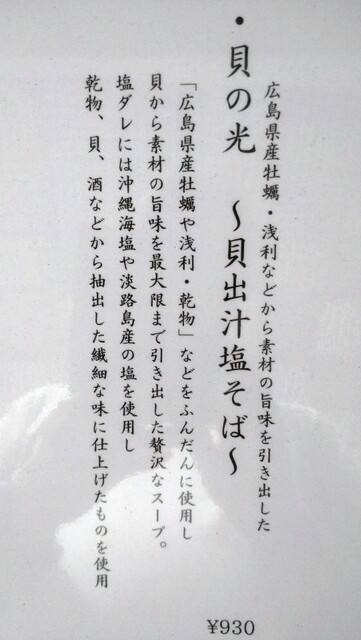 広島県産牡蠣・浅利などから素材の旨味を引き出した
・貝の光　～貝出汁塩そば～
「広島県産牡蠣や浅利・乾物」などをふんだんに使用し
貝から素材の旨味を最大限まで引き出した贅沢なスープ。
塩ダレには沖縄海塩や淡路島産の塩を使用し
乾物、貝、酒などから抽出した繊細な味に仕上げたものを使用
¥930